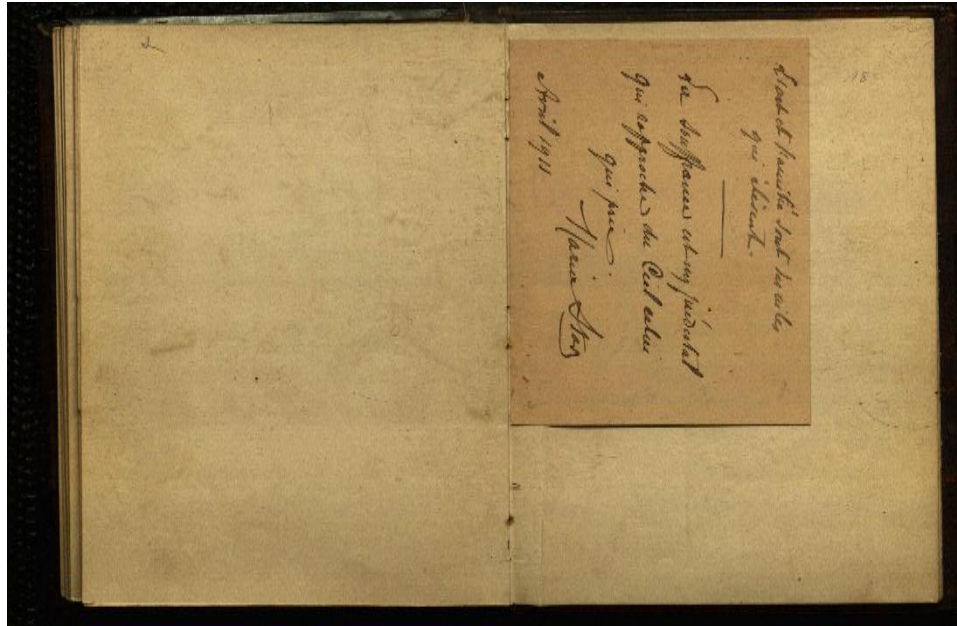 L'art et l'amitié sont des ailes
qui élèvent.
La souffrance est un piédestal
qui rapproche du Ciel celui
qui prie.
Marie Star
Avril 1911
18